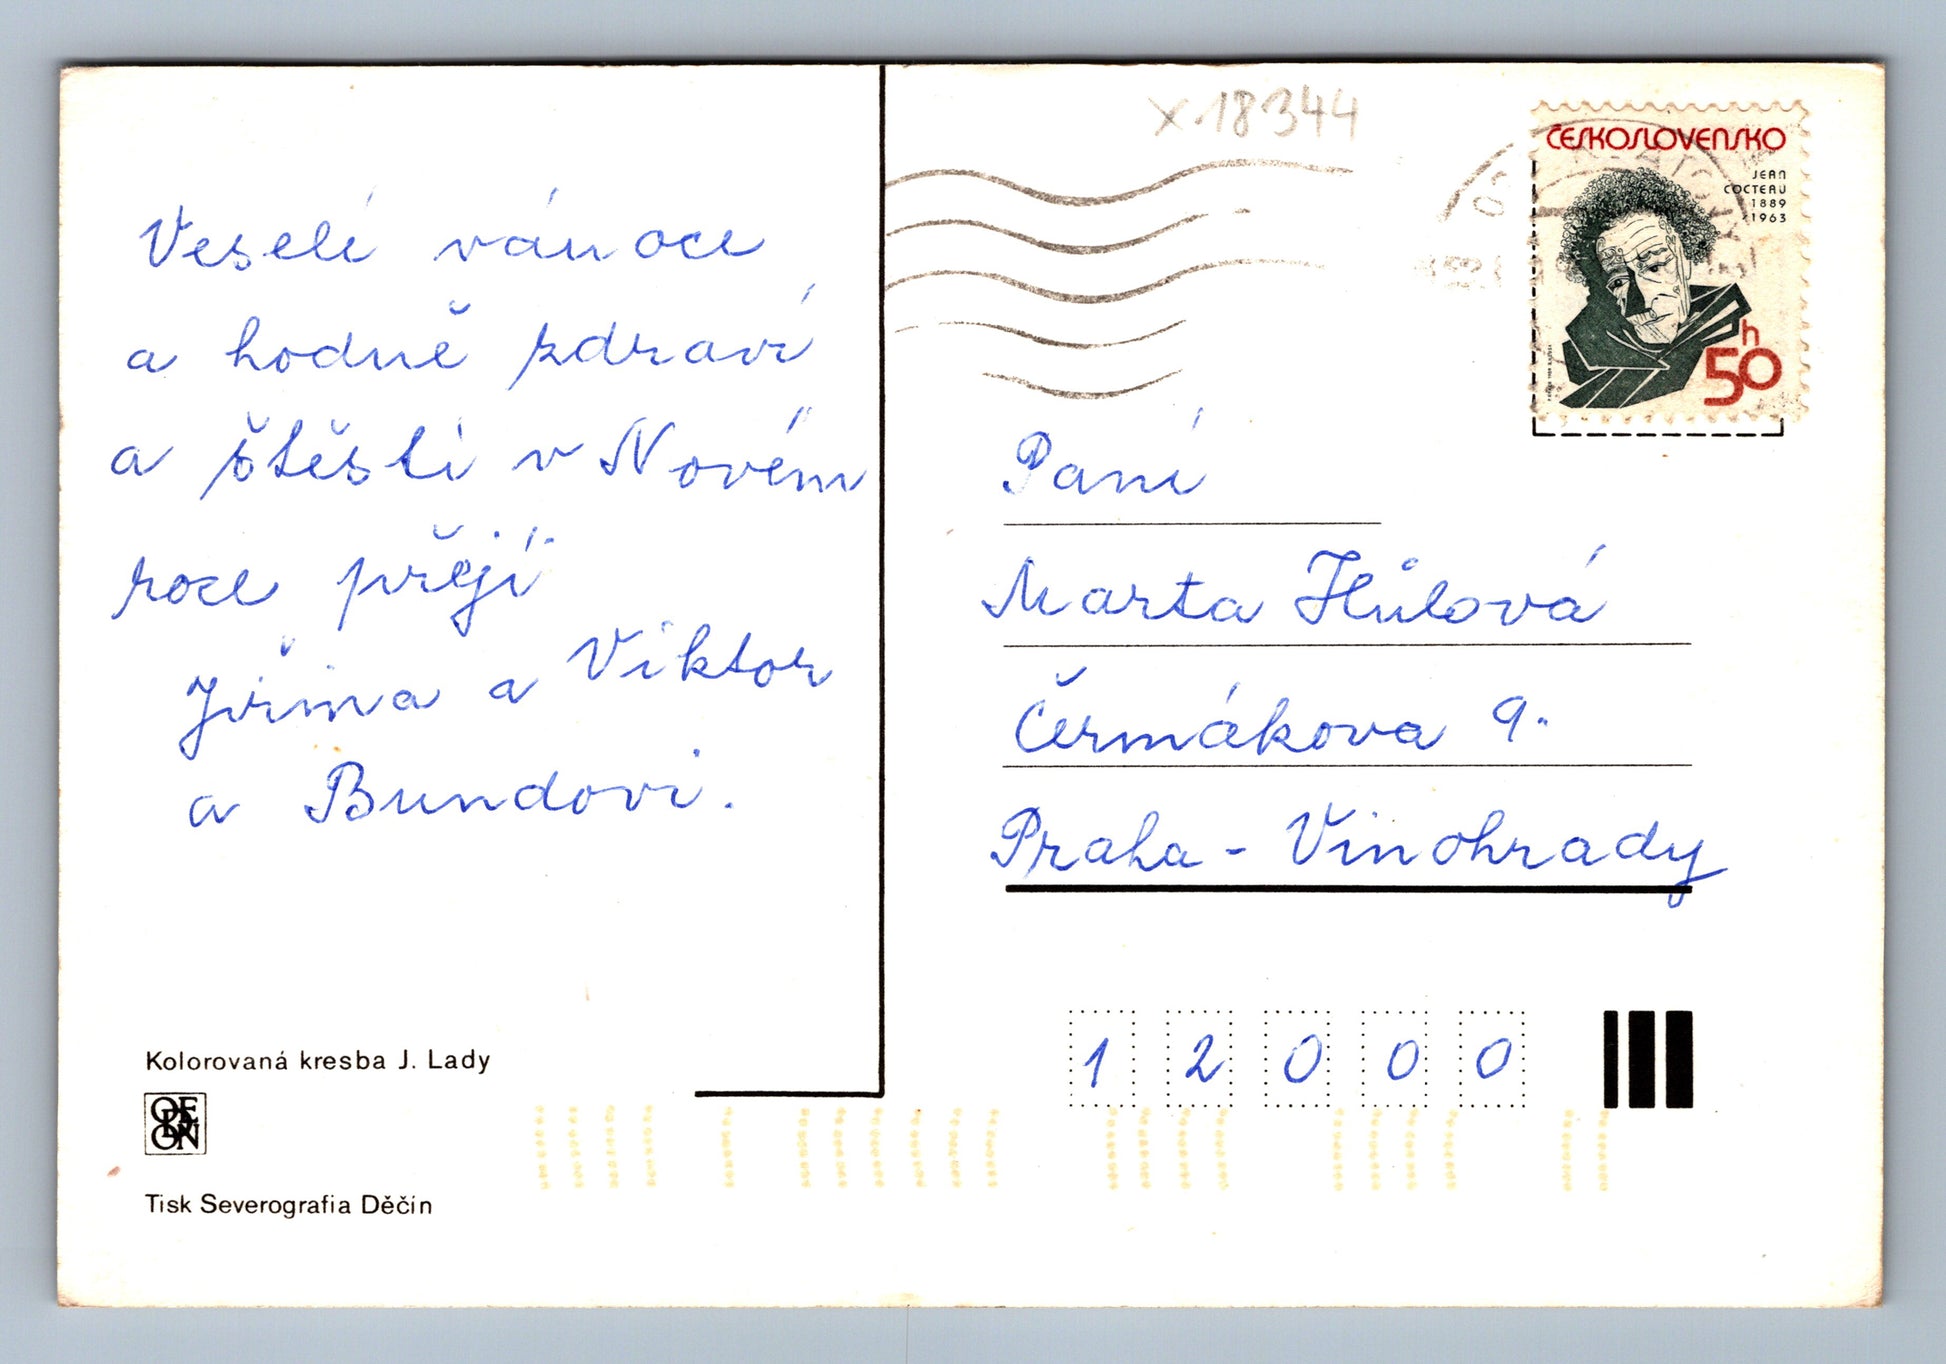 Veselé vánoce
a hodně zdraví
a štěstí v Novém
roce přejí
Jiřina a Viktor
a Bundovi.
Kolorovaná kresba J. Lady
ODEON
Tisk Severografia Děčín
x.18344
ČESKOSLOVENSKO
JEAN
COCTEAU
1889
1963
50 h
Paní
Marta Hůlová
Čermákova 9.
Praha - Vinohrady
1 2 0 0 0